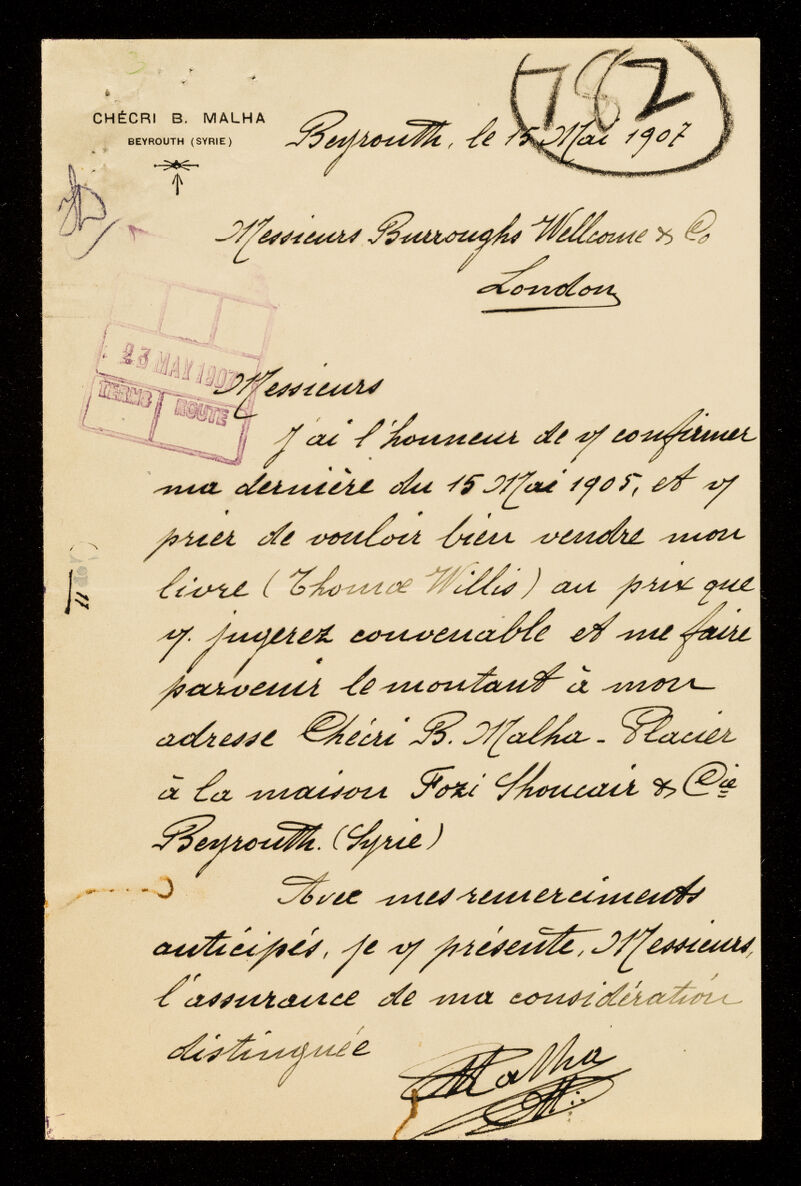 782
CHÉCRI B. MALHA
BEYROUTH (SYRIE)
Beyrouth, le 15 Mai 1907
Messieurs Burroughs Wellcome & Co
London
23 MAY 1907
TERMS ROUTE
Messieurs
J'ai l'honneur de v/ confirmer
ma dernière du 15 Mai 1905, et v/
prier de vouloir bien vendre mon
livre (Thomœ Willis) au prix que
v/. jugerez convenable et me faire
parvenir le montant à mon
adresse Chécri B. Malha - Placier
à la maison Fozi Shoucair & Cie
Beyrouth. (Syrie)
Avec mes remerciments
anticipés, je v/ présente, Messieurs,
l'assurance de ma considération
distinguée
Malha